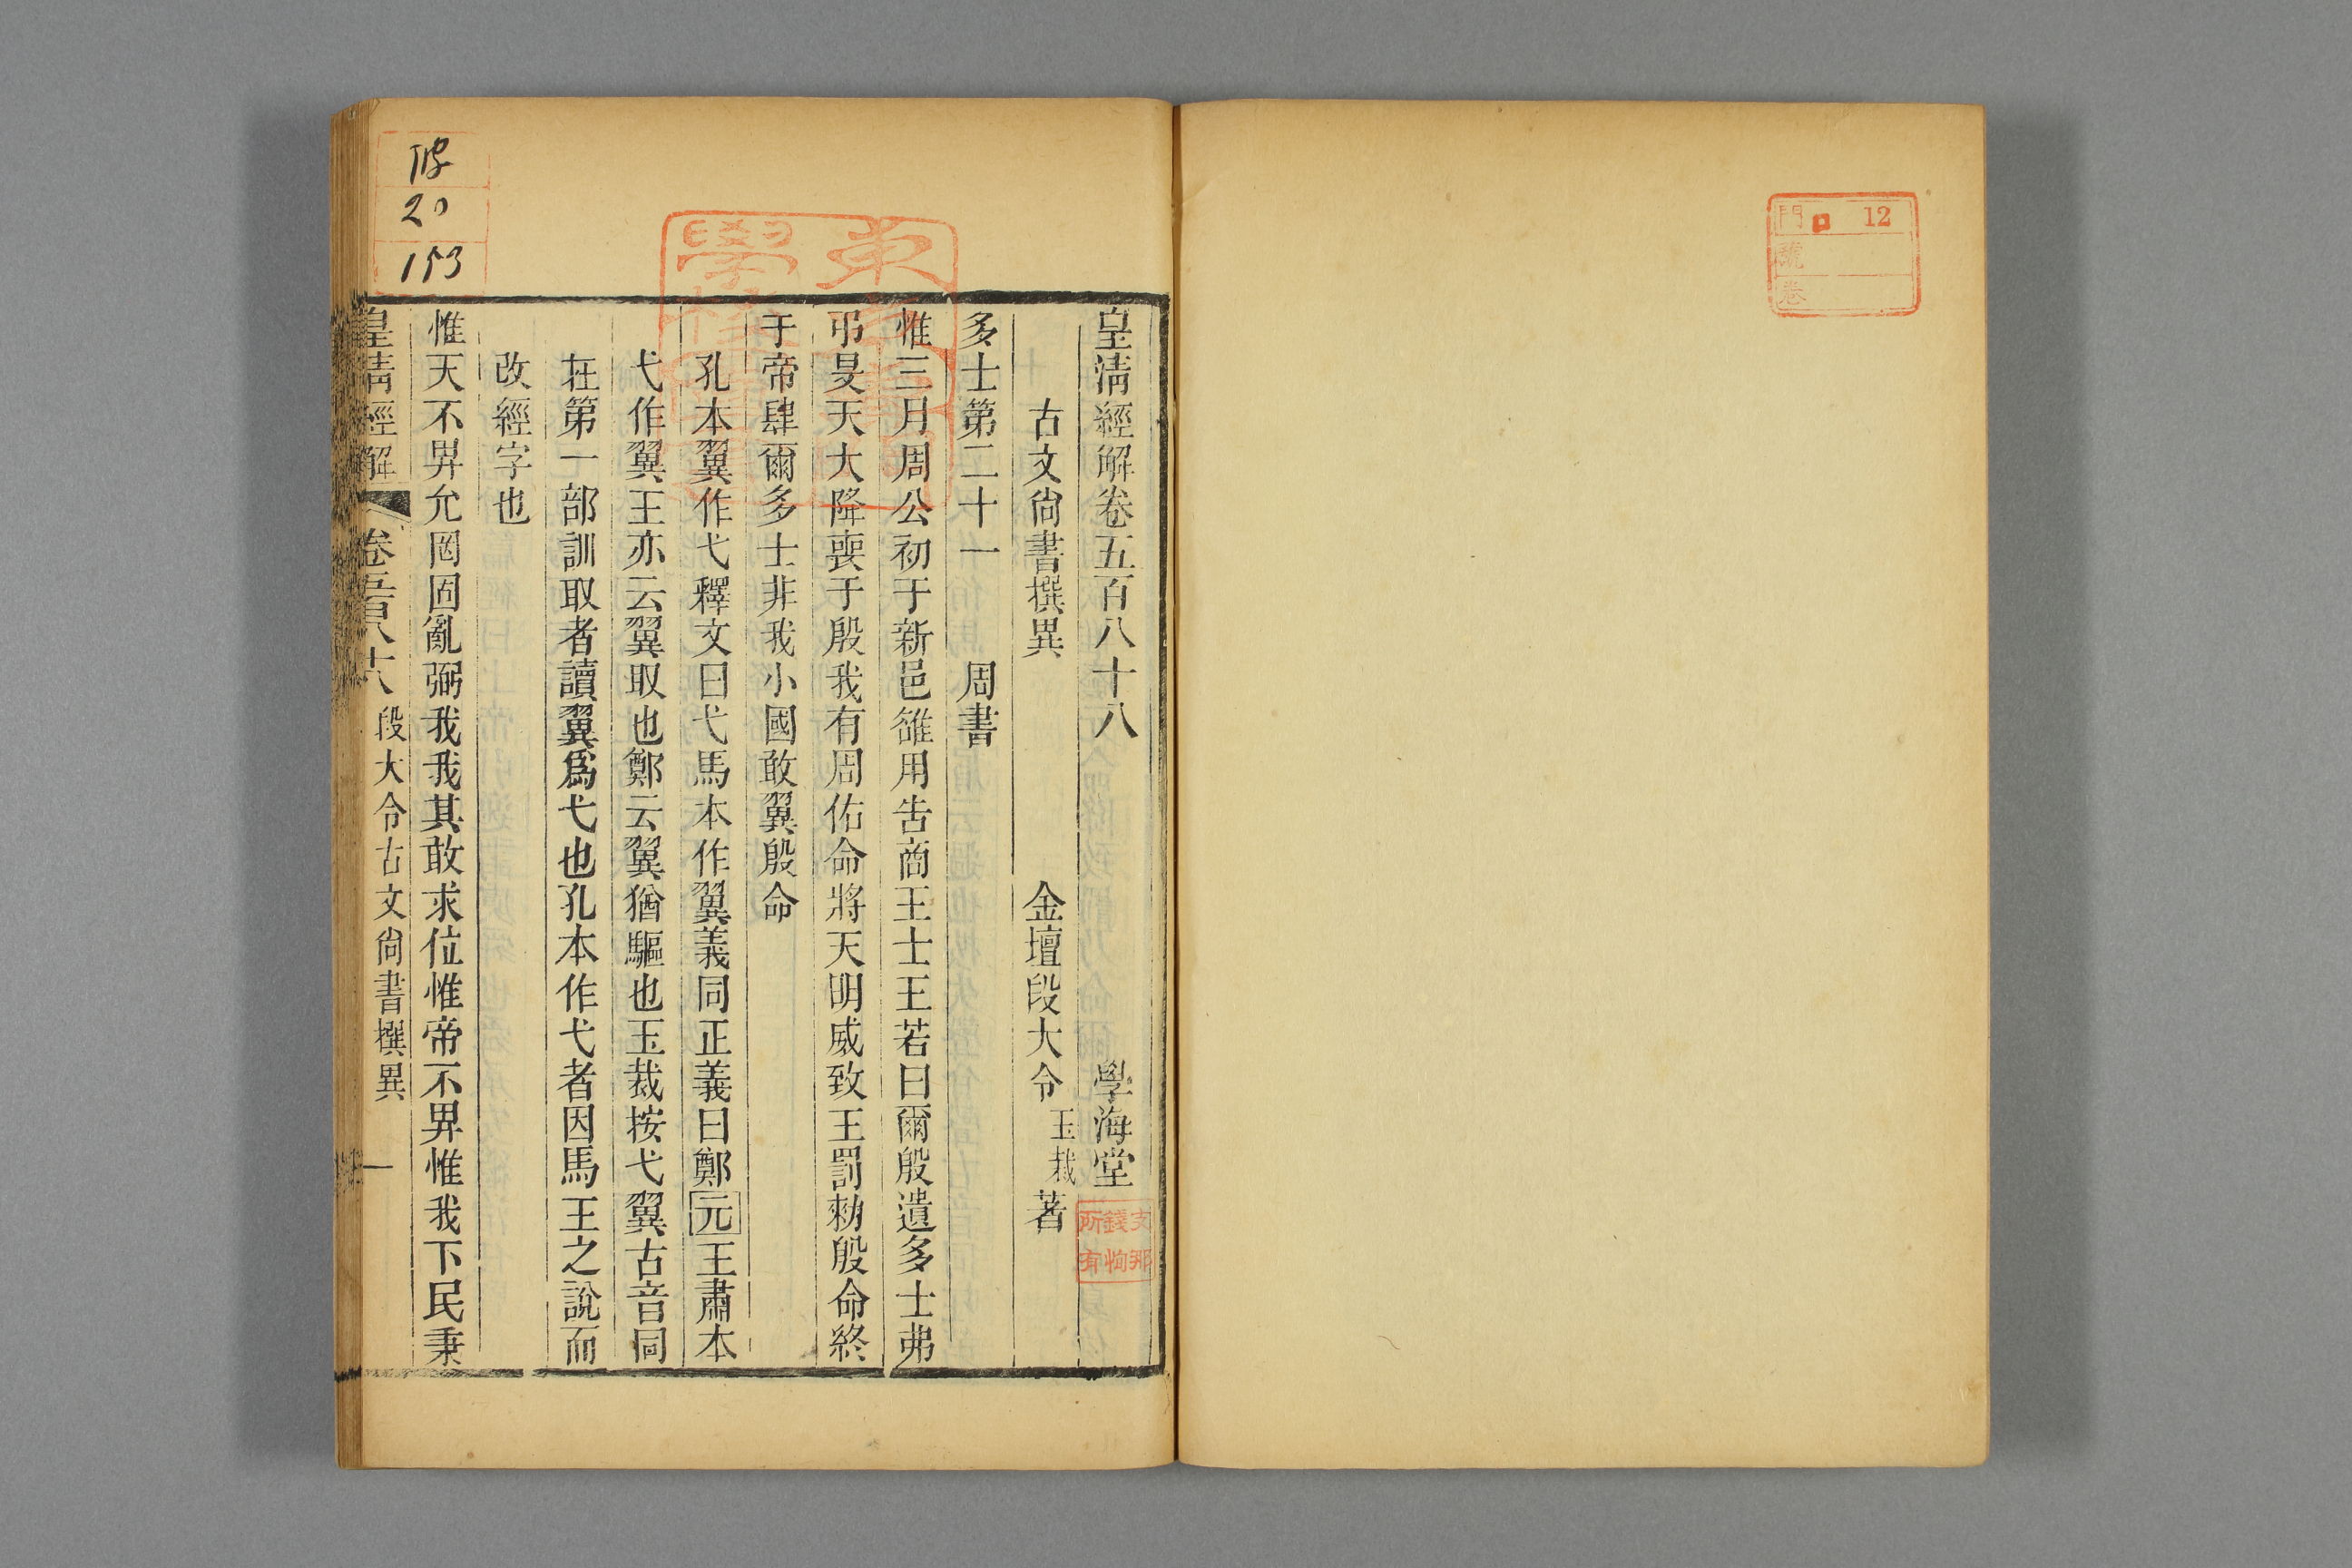 門 12
號
卷
皇淸經解卷五百八十八 學海堂
支那
錢恂
所有
古文尙書撰異 金壇段大令玉裁著
多士第二十一 周書
惟三月周公初于新邑雒用吿商王士王若曰爾殷遺多士弗
弔旻天大降喪于殷我有周佑命將天明威致王罰勑殷命終
于帝肆爾多士非我小國敢翼殷命
孔本翼作弋釋文曰弋馬本作翼義同正義曰鄭元王肅本
弋作翼王亦云翼取也鄭云翼猶驅也玉裁按弋翼古音同
在第一部訓取者讀翼爲弋也孔本作弋者因馬王之說而
改經字也
惟天不畀允罔固亂弼我我其敢求位惟帝不畀惟我下民秉
皇淸經解 卷五百八十八 段大令古文尙書撰異 一
20
153